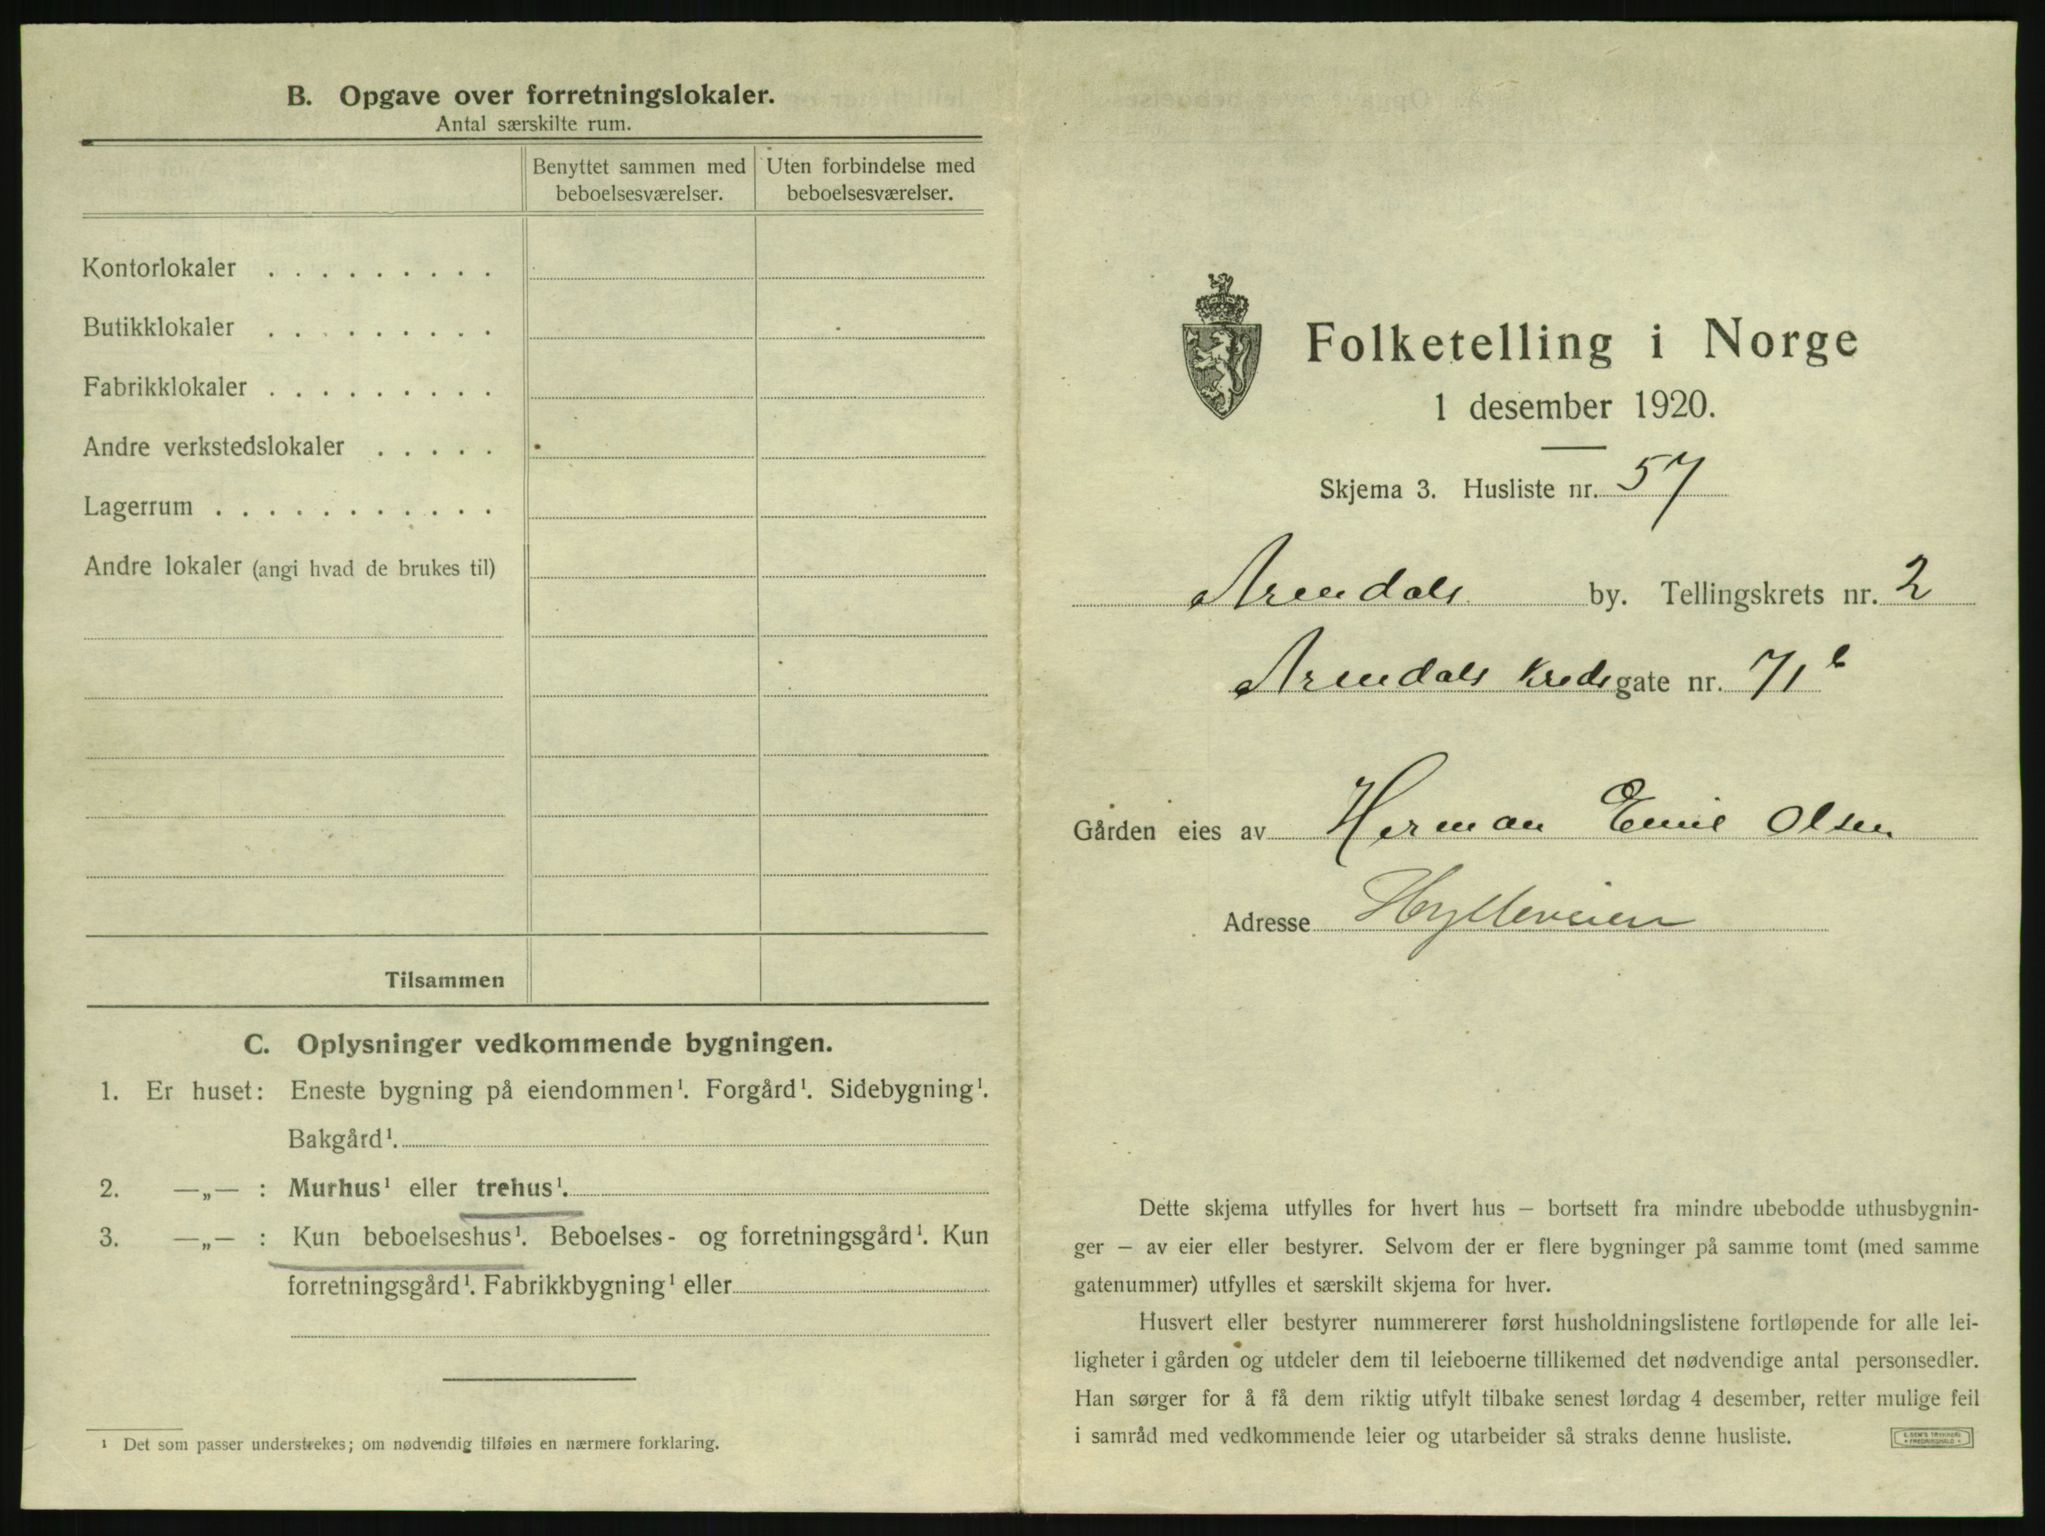 B. Opgave over forretningslokaler.
Antal særskilte rum.
Benyttet sammen med beboelsesværelser.
Uten forbindelse med beboelsesværelser.
Kontorlokaler . . . . . . . . .
Butikklokaler . . . . . . . . .
Fabrikklokaler . . . . . . . . .
Andre verkstedslokaler . . . . .
Lagerrum . . . . . . . . . . .
Andre lokaler (angi hvad de brukes til)
Tilsammen
C. Oplysninger vedkommende bygningen.
1. Er huset: Eneste bygning på eiendommen¹. Forgård¹. Sidebygning¹.
Bakgård¹.
2. —„— : Murhus¹ eller trehus¹.
3. —„— : Kun beboelseshus¹. Beboelses- og forretningsgård¹. Kun
forretningsgård¹. Fabrikkbygning¹ eller
¹ Det som passer understrekes; om nødvendig tilføies en nærmere forklaring.
Folketelling i Norge
1 desember 1920.
Skjema 3. Husliste nr. 57
Arendals by. Tellingskrets nr. 2
Arendals Kreds gate nr. 71
Gården eies av Herman Emil Olsen
Adresse Hylleveien
Dette skjema utfylles for hvert hus – bortsett fra mindre ubebodde uthusbygnin-
ger – av eier eller bestyrer. Selvom der er flere bygninger på samme tomt (med samme
gatenummer) utfylles et særskilt skjema for hver.
Husvert eller bestyrer nummererer først husholdningslistene fortløpende for alle lei-
ligheter i gården og utdeler dem til leieboerne tillikemed det nødvendige antal personsedler.
Han sørger for å få dem riktig utfylt tilbake senest lørdag 4 desember, retter mulige feil
i samråd med vedkommende leier og utarbeider så straks denne husliste.